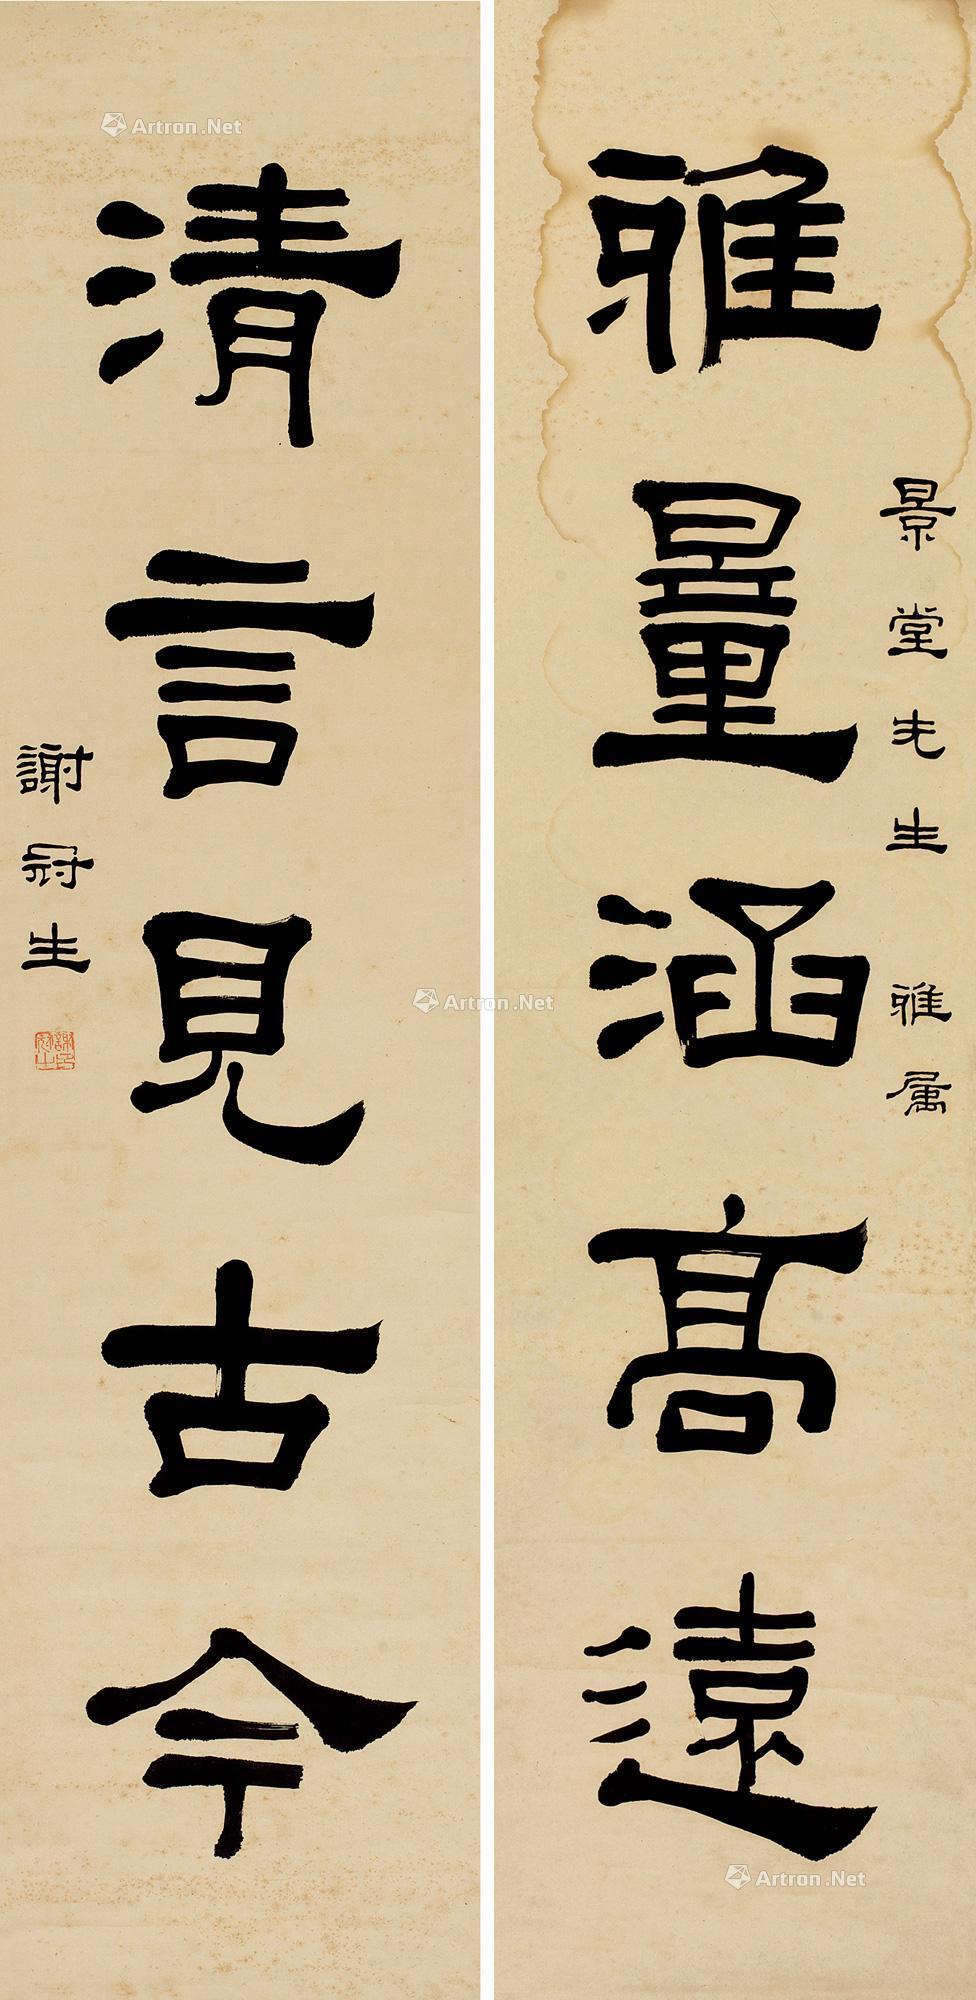 景堂先生雅属
雅量涵高遠
清言見古今
謝冠生
謝冠生印
Artron.Net
Artron.Net
Artron.Net